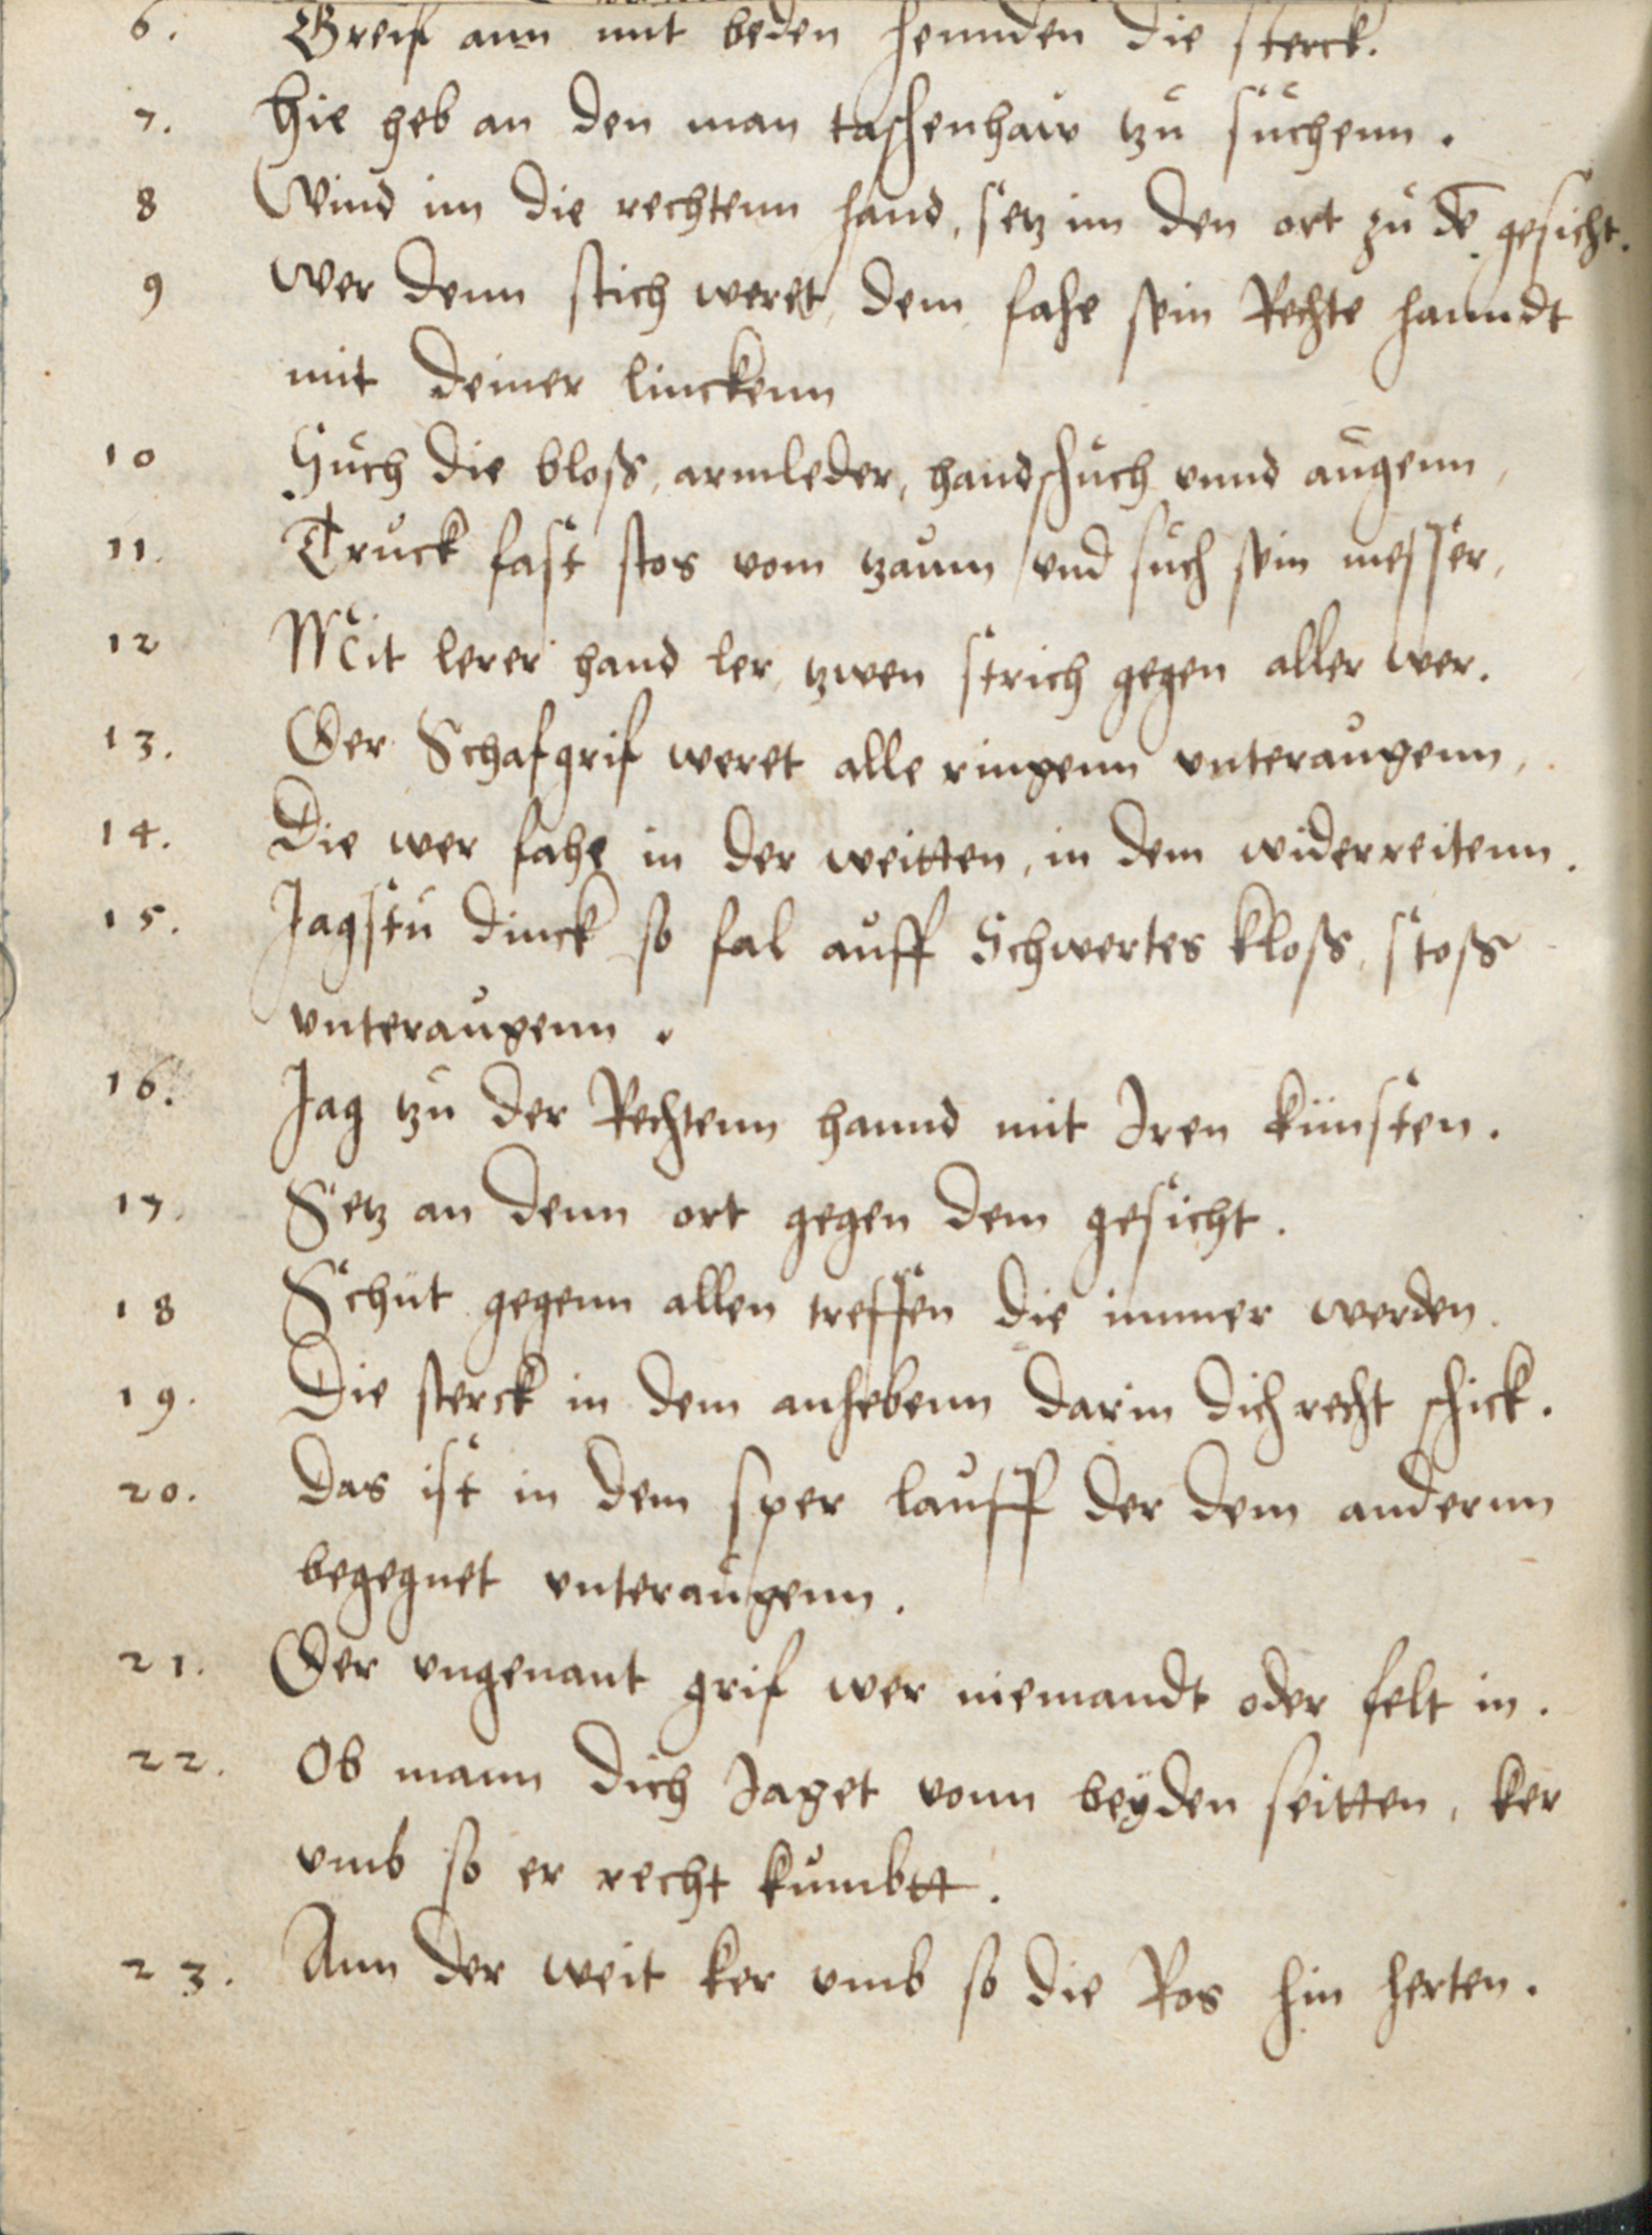 6. Greif ann mit beden hennden die sterck.
7. Hie heb an den man taschenhaw tzu suchenn.
8 Wind im die rechtenn hand, setz im den ort zu dē gesicht.
9 Wer denn stich weret, dem fahe sein Rechte hanndt
mit deiner linckenn
10 Such die bloß, armleder, handschuch vnnd augenn,
11. Truck fast stos vom tzaum vnd such sein messer,
12 Mit lerer hand ler, tzwen strich gegen aller wer.
13. Der Schafgrif weret alle ringenn vnteraugenn,
14. Die wer fahe in der weitten, in dem widerreitenn.
15. Jagstu dinck so fal auff Schwertes kloß, stoß
vnteraugenn.
16. Jag tzu der Rechtenn hannd mit Iren künsten.
17. Setz an denn ort gegen dem gesicht.
18 Schut gegenn allen treffen die immer werden.
19. Die sterck in dem anhebenn darin dich recht schick.
20. Das ist in dem sper lauff der dem andernn
begegnet vnteraugenn.
21. Der vngenant grif wer niemandt oder felt in.
22. Ob mann dich Jaget vonn beyden seitten, ker
vmb so er recht kumbtt.
23. Ann der weit ker vmb so die Ros hin herten.